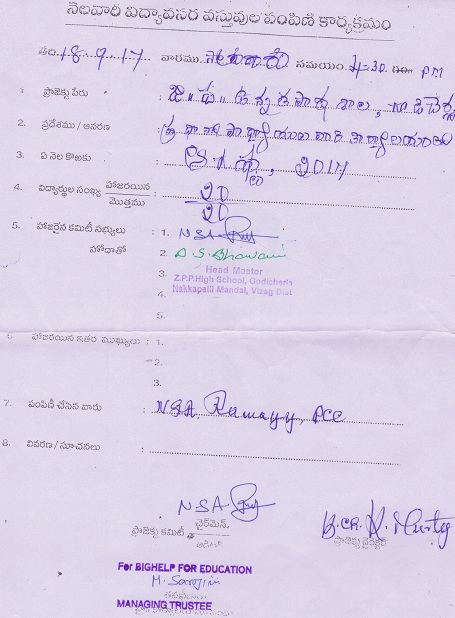 నెలవారి విద్యావసర వస్తువుల పంపిణీ కార్యక్రమం
తేది. 18.9.17 వారము. సమయం. 4-30. PM
1. ప్రాజెక్టు పేరు : జి.ప.ఉన్నత పాఠశాల,
2. ప్రదేశము / ఆవరణ : ప్రధానోపాధ్యాయుల వారి కార్యాలయం
3. ఏ నెల కొఱకు : 2017
4. విద్యార్థుల సంఖ్య హాజరయిన 20
మొత్తము 20
5. హాజరైన కమిటీ సభ్యులు : 1. NSA
హోదాతో 2. D.S.Bhavani
3. Head Master
Z.P.P.High School, Godicherla
4. Nakkapalli Mandal, Vizag Dist
5.
6. హాజరయిన ఇతర ముఖ్యులు : 1.
2.
3.
7. పంపిణీ చేసిన వారు : NSA, Ramayy, PCC
8. వివరణ / సూచనలు :
NSA
ప్రాజెక్టు కమిటీ ఛైర్మెన్. B.Ch.V. Murty
ప్రాజెక్టు డైరెక్టర్
For BIGHELP FOR EDUCATION
M. Sarojini
MANAGING TRUSTEE